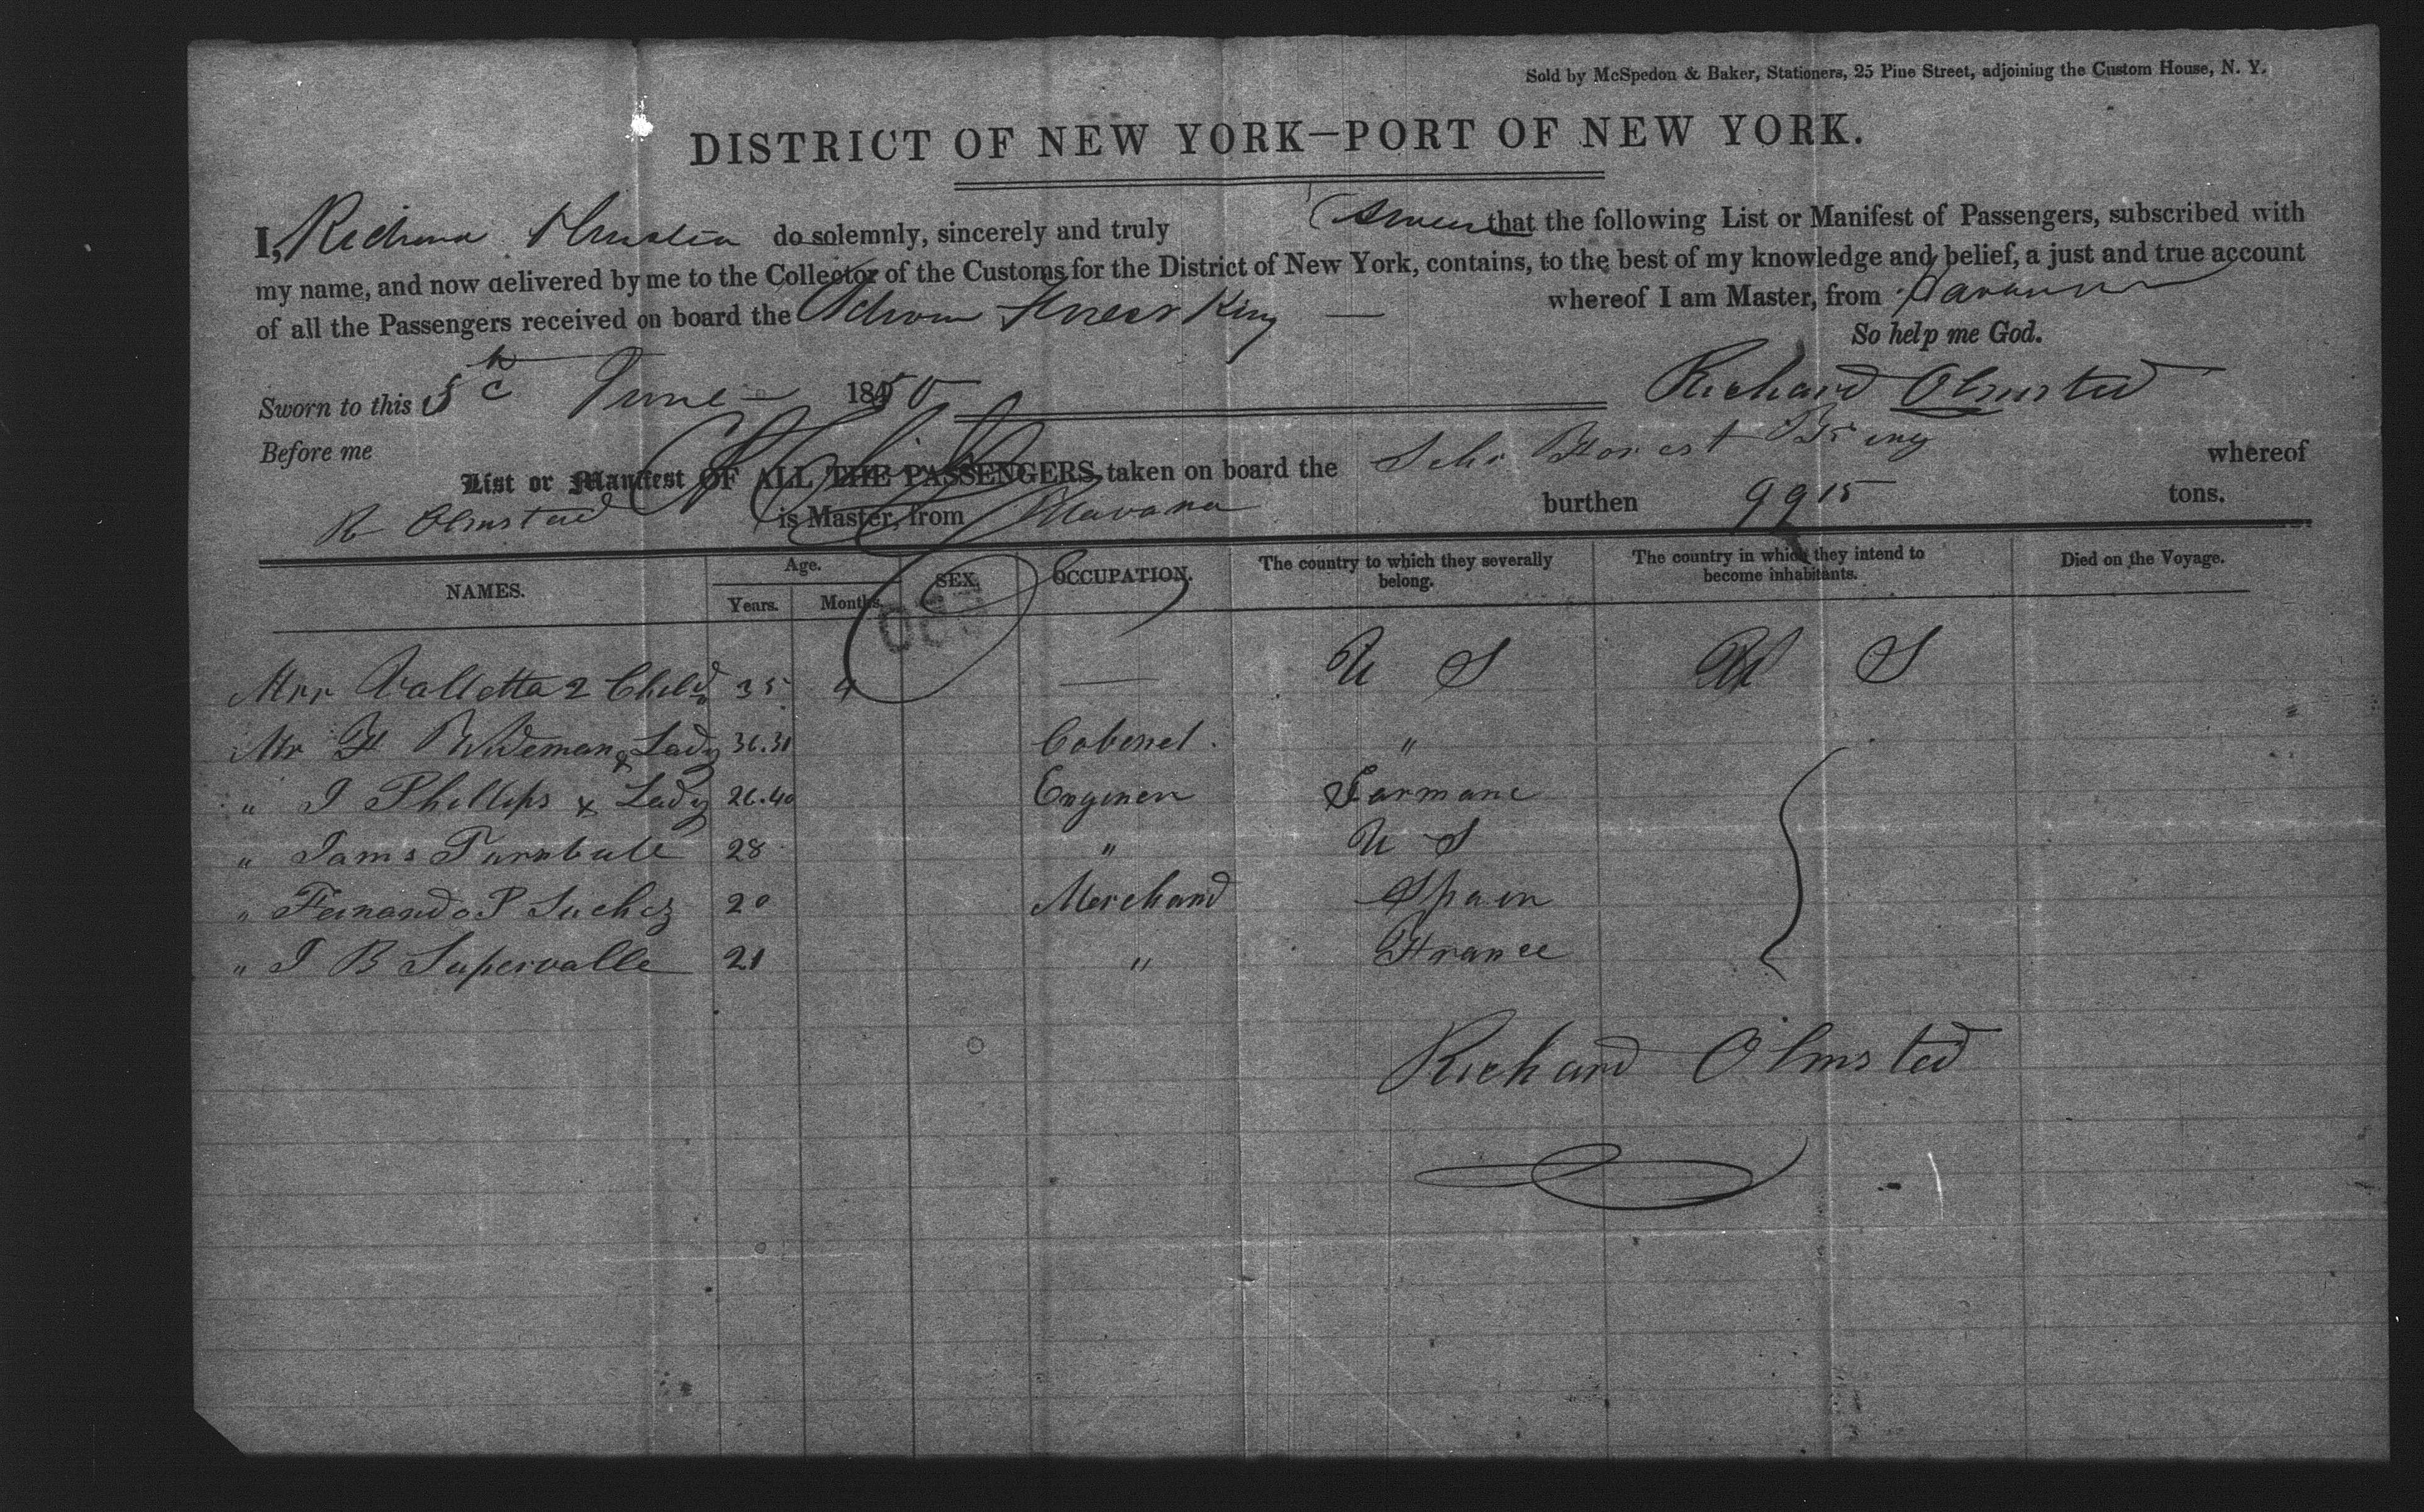 Sold by McSpedon & Baker, Stationers, 25 Pine Street, adjoining the Custom House, N. Y.
DISTRICT OF NEW YORK—PORT OF NEW YORK.
I, Richard Olmsted do solemnly, sincerely and truly Swear that the following List or Manifest of Passengers, subscribed with
my name, and now delivered by me to the Collector of the Customs for the District of New York, contains, to the best of my knowledge and belief, a just and true account
of all the Passengers received on board the Schooner Forest King — whereof I am Master, from Havanna
So help me God.
Sworn to this 5th June 1850
Richard Olmsted
Before me
List or Manifest OF ALL THE PASSENGERS taken on board the Schr Forest King whereof
R Olmsted is Master, from Havana burthen 99 15 tons.
NAMES. Age. Years. Months. SEX. OCCUPATION. The country to which they severally belong. The country in which they intend to become inhabitants. Died on the Voyage.
Mrs Valletta 2 Child 35 4 — U S U S
Mr F Wideman & Lady 36.31 Cabenet "
" J Phillips & Lady 26.40 Enginen Garmane
" Jams Turnbule 28 " U S
" Fernando P Suchez 20 Merchand Spain
" J B Supervalle 21 " France
Richard Olmsted